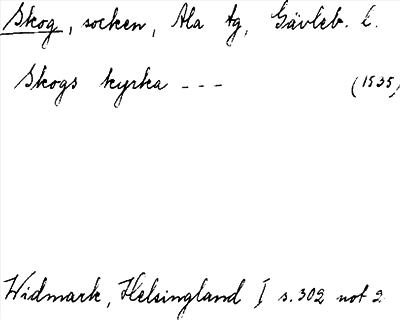 Skog, socken, Ala tg, Gävleb. l.
Skogs kyrka --- (1535)
Widmark, Helsingland I s. 302 not 2